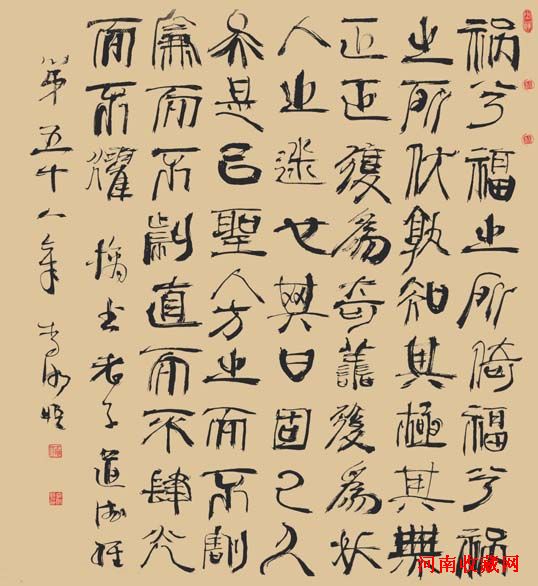 祸兮福之所倚福兮祸
之所伏孰知其極其無
正正復爲奇善復爲妖
人之迷也其日固已久
矣是㠯聖人方之而不割
廉而不劌直而不肆光
而不耀 摘書老子道德經
第五十八章 李
河南收藏网